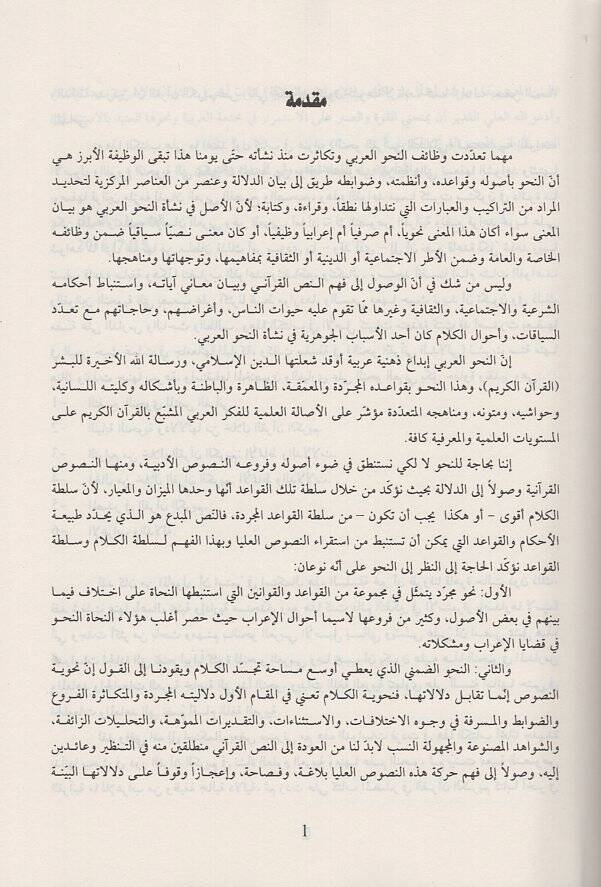 مقدمة
مهما تعدّدت وظائف النحو العربي وتكاثرت منذ نشأته حتّى يومنا هذا تبقى الوظيفة الأبرز هي
أنّ النحو بأصوله وقواعده، وأنظمته، وضوابطه طريق إلى بيان الدلالة وعنصر من العناصر المركزية لتحديد
المراد من التراكيب والعبارات التي نتداولها نطقاً، وقراءة، وكتابة؛ لأنّ الأصل في نشأة النحو العربي هو بيان
المعنى سواء أكان هذا المعنى نحوياً، أم صرفياً أم إعرابياً وظيفياً، أو كان معنى نصيّاً سياقياً ضمن وظائفه
الخاصة والعامة وضمن الأطر الاجتماعية أو الدينية أو الثقافية بمفاهيمها، وتوجهاتها ومناهجها.
وليس من شك في أنّ الوصول إلى فهم النص القرآني وبيان معاني آياته، واستنباط أحكامه
الشرعية والاجتماعية، والثقافية وغيرها ممّا تقوم عليه حيوات الناس، وأغراضهم، وحاجاتهم مع تعدّد
السياقات، وأحوال الكلام كان أحد الأسباب الجوهرية في نشأة النحو العربي.
إنّ النحو العربي إبداع ذهنية عربية أوقد شعلتها الدين الإسلامي، ورسالة الله الأخيرة للبشر
(القرآن الكريم)، وهذا النحو بقواعده المجرّدة والمعمّقة، الظاهرة والباطنة وبأشكاله وكليته اللسانية،
وحواشيه، ومتونه، ومناهجه المتعدّدة مؤشّر على الأصالة العلمية للفكر العربي المشبّع بالقرآن الكريم على
المستويات العلمية والمعرفية كافة.
إننا بحاجة للنحو لا لكي نستنطق في ضوء أصوله وفروعه النصوص الأدبية، ومنها النصوص
القرآنية وصولاً إلى الدلالة بحيث نؤكّد من خلال سلطة تلك القواعد أنّها وحدها الميزان والمعيار، لأنّ سلطة
الكلام أقوى – أو هكذا يجب أن تكون – من سلطة القواعد المجردة، فالنّص المبدع هو الذي يحدّد طبيعة
الأحكام والقواعد التي يمكن أن تستنبط من استقراء النصوص العليا وبهذا الفهم لسلطة الكلام وسلطة
القواعد نؤكّد الحاجة إلى النظر إلى النحو على أنّه نوعان:
الأول: نحو مجرّد يتمثّل في مجموعة من القواعد والقوانين التي استنبطها النحاة على اختلاف فيما
بينهم في بعض الأصول، وكثير من فروعها لاسيما أحوال الإعراب حيث حصر أغلب هؤلاء النحاة النحو
في قضايا الإعراب ومشكلاته.
والثاني: النحو الضمني الذي يعطي أوسع مساحة تجسّد الكلام ويقودنا إلى القول إنّ نحوية
النصوص إنّما تقابل دلالاتها، فنحوية الكلام تعني في المقام الأول دلاليته المجردة والمتكاثرة الفروع
والضوابط والمسرفة في وجوه الاختلافات، والاستثناءات، والتقديرات المموّهة، والتحليلات الزائفة،
والشواهد المصنوعة والمجهولة النسب لابدّ لنا من العودة إلى النص القرآني منطلقين منه في التنظير وعائدين
إليه، وصولاً إلى فهم حركة هذه النصوص العليا بلاغة، وفصاحة، وإعجازاً وقوفاً على دلالاتها البيّنة
أ